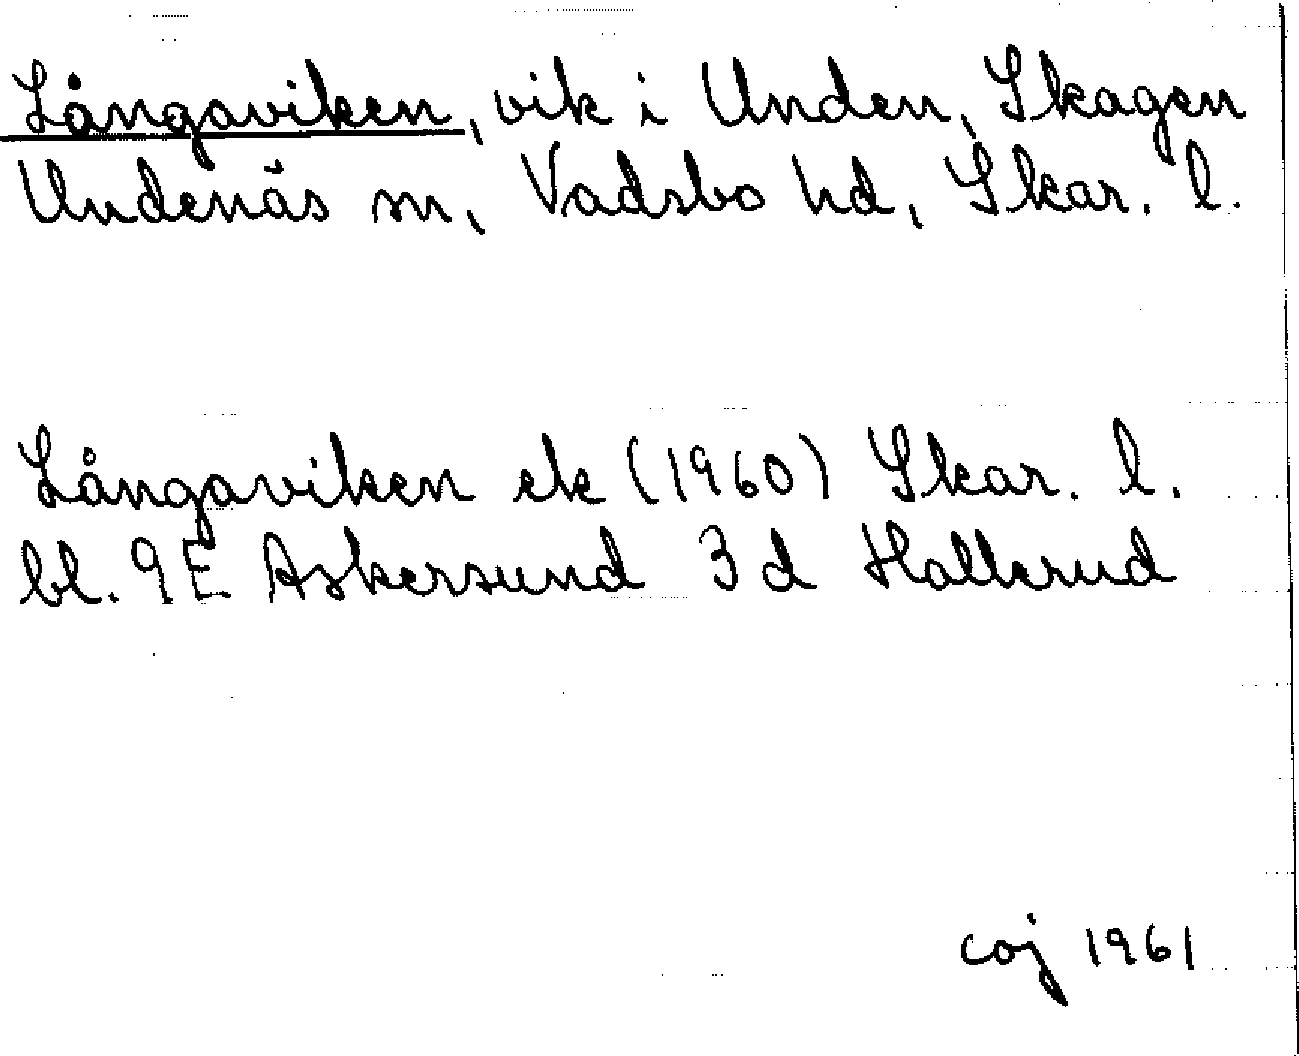 Långaviken, vik i Unden, Skagen
Undenäs sn, Vadsbo hd, Skar. l.
Långaviken ek (1960) Skar. l.
bl. 9E Askersund 3d Hallerud
coj 1961